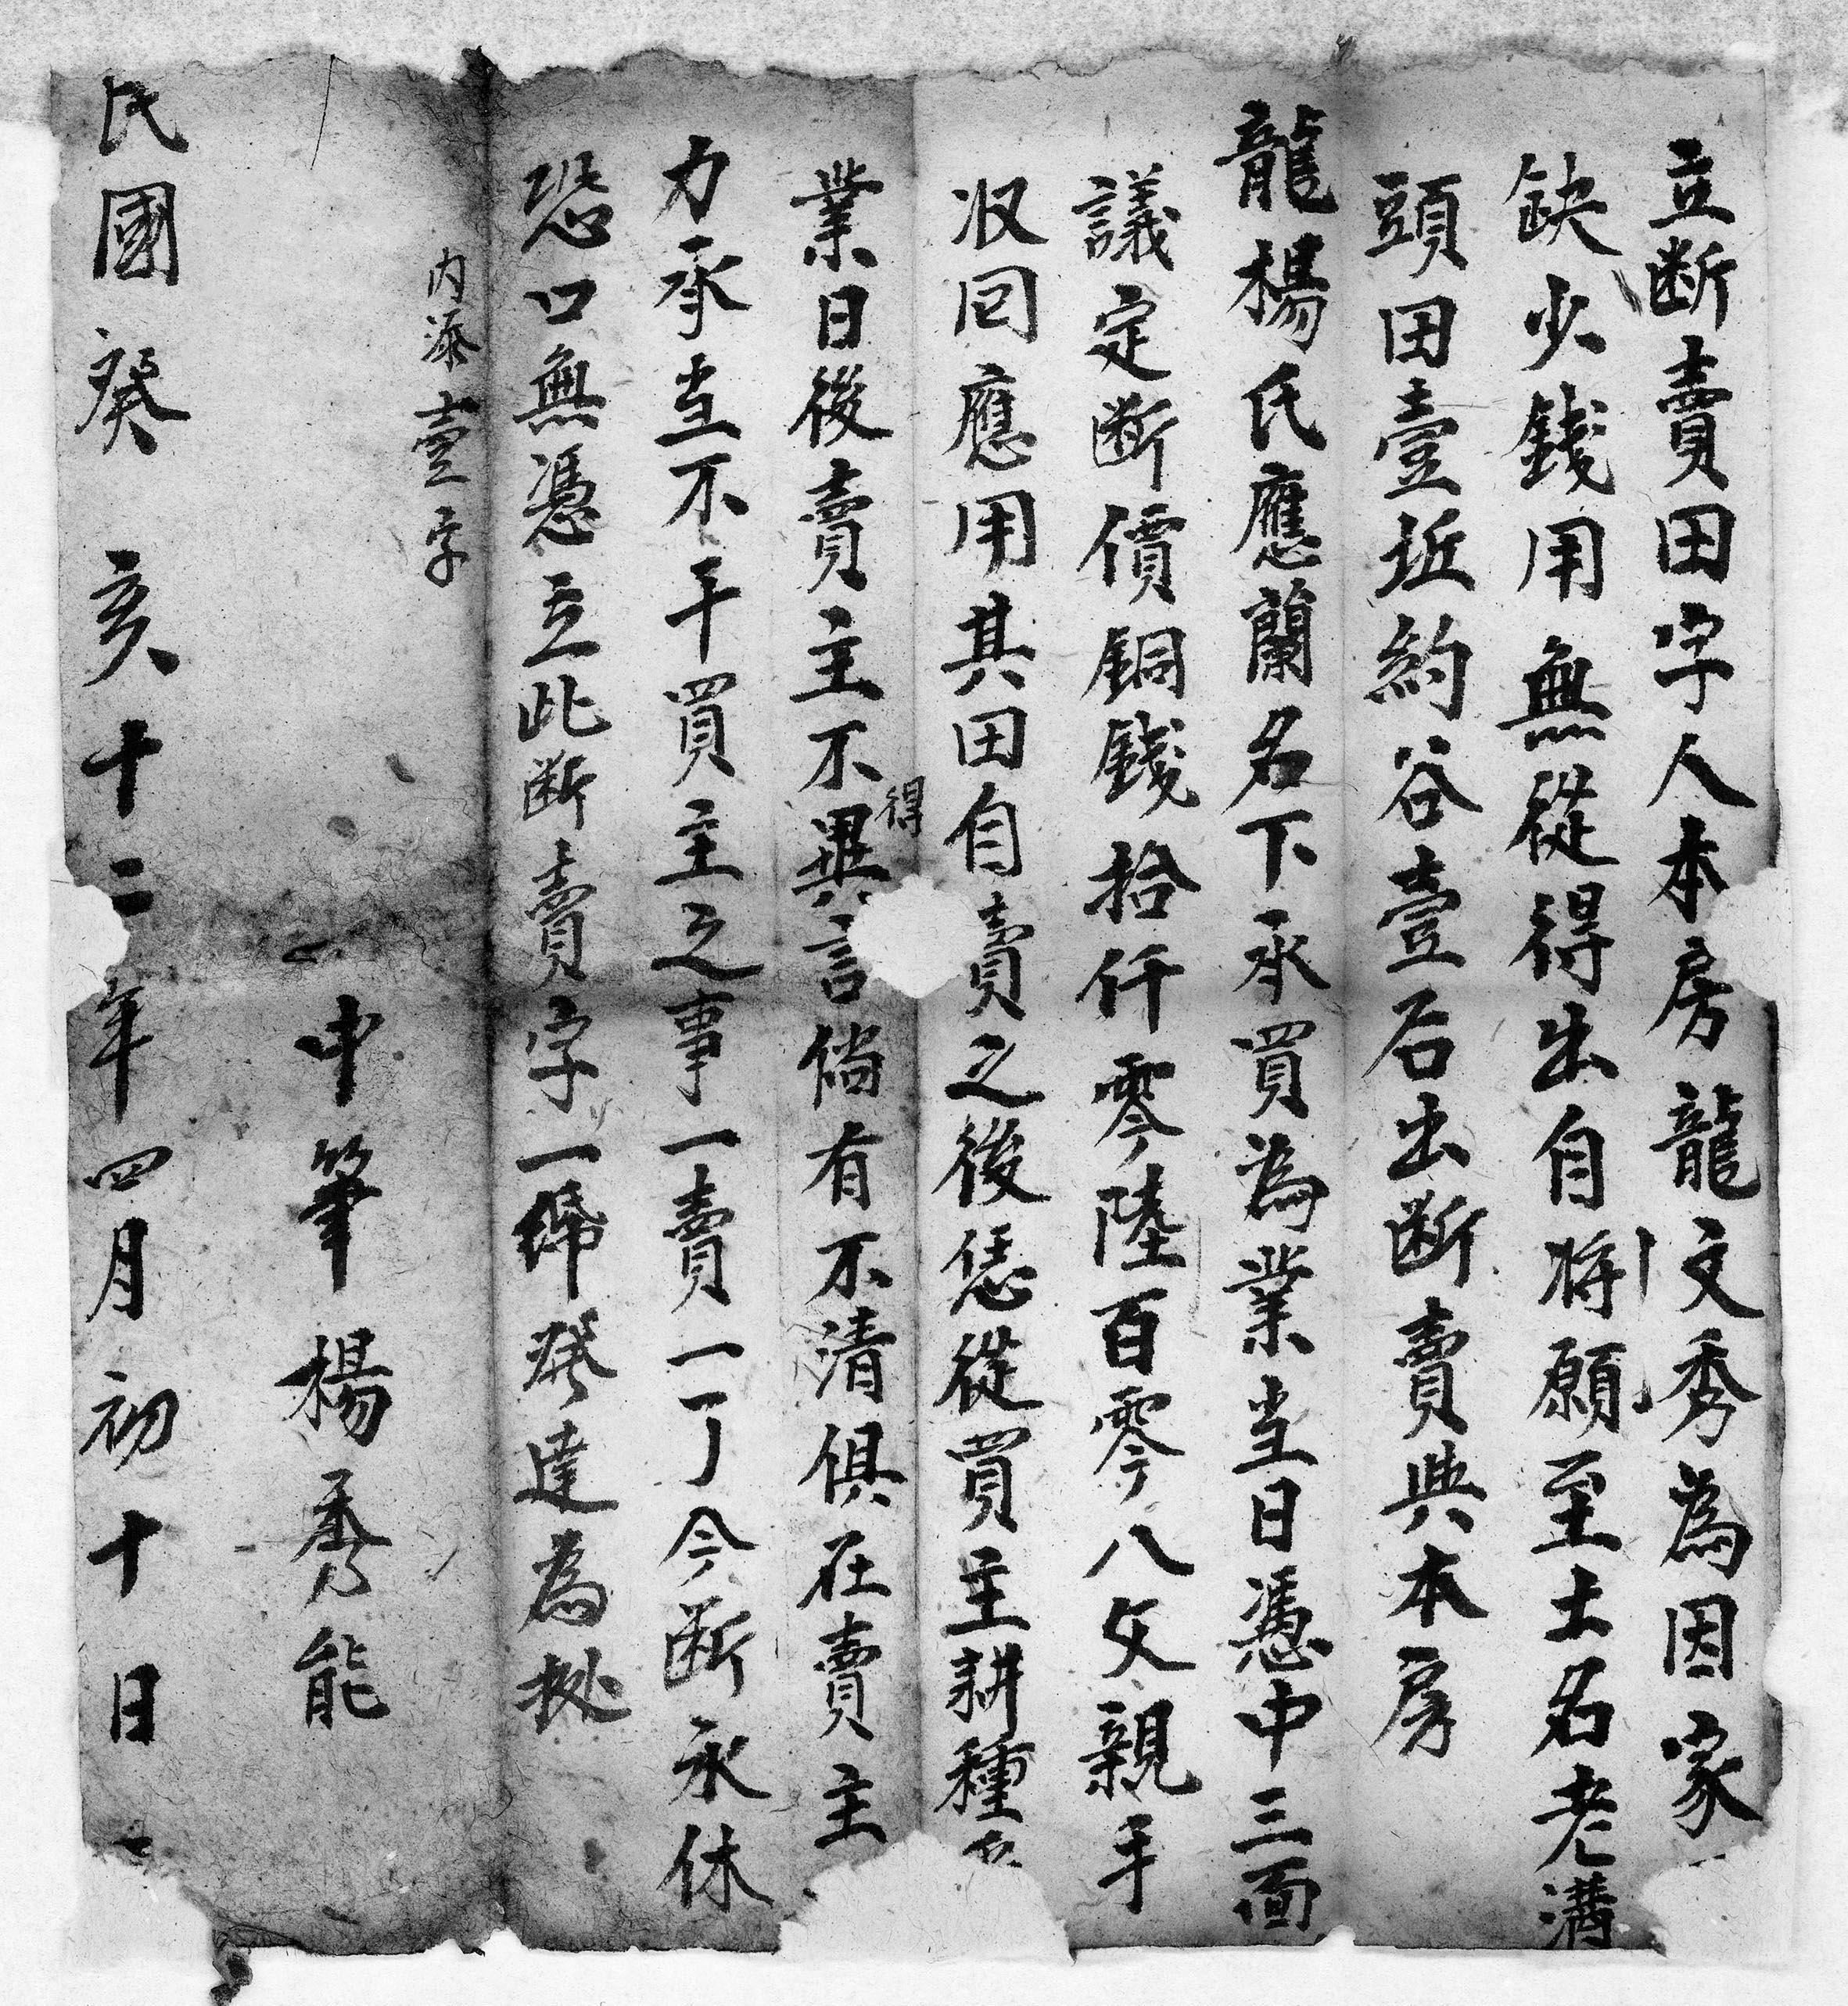 立断賣田字人本房龍文秀為因家
缺少錢用無從得出自將願至土名老溝
頭田壹坵約谷壹石出断賣與本房
龍楊氏應蘭名下承買為業当日憑中三面
議定断價銅錢拾仟零陸百零八文親手
収回應用其田自賣之後恁從買主耕種
業日後賣主不得異言倘有不清俱在賣主
力承当不干買主之事一賣一了今断永休
恐口無憑立此断賣字一紙發達為據
内添壹字
中筆楊秀能
民國癸亥十二年四月初十日